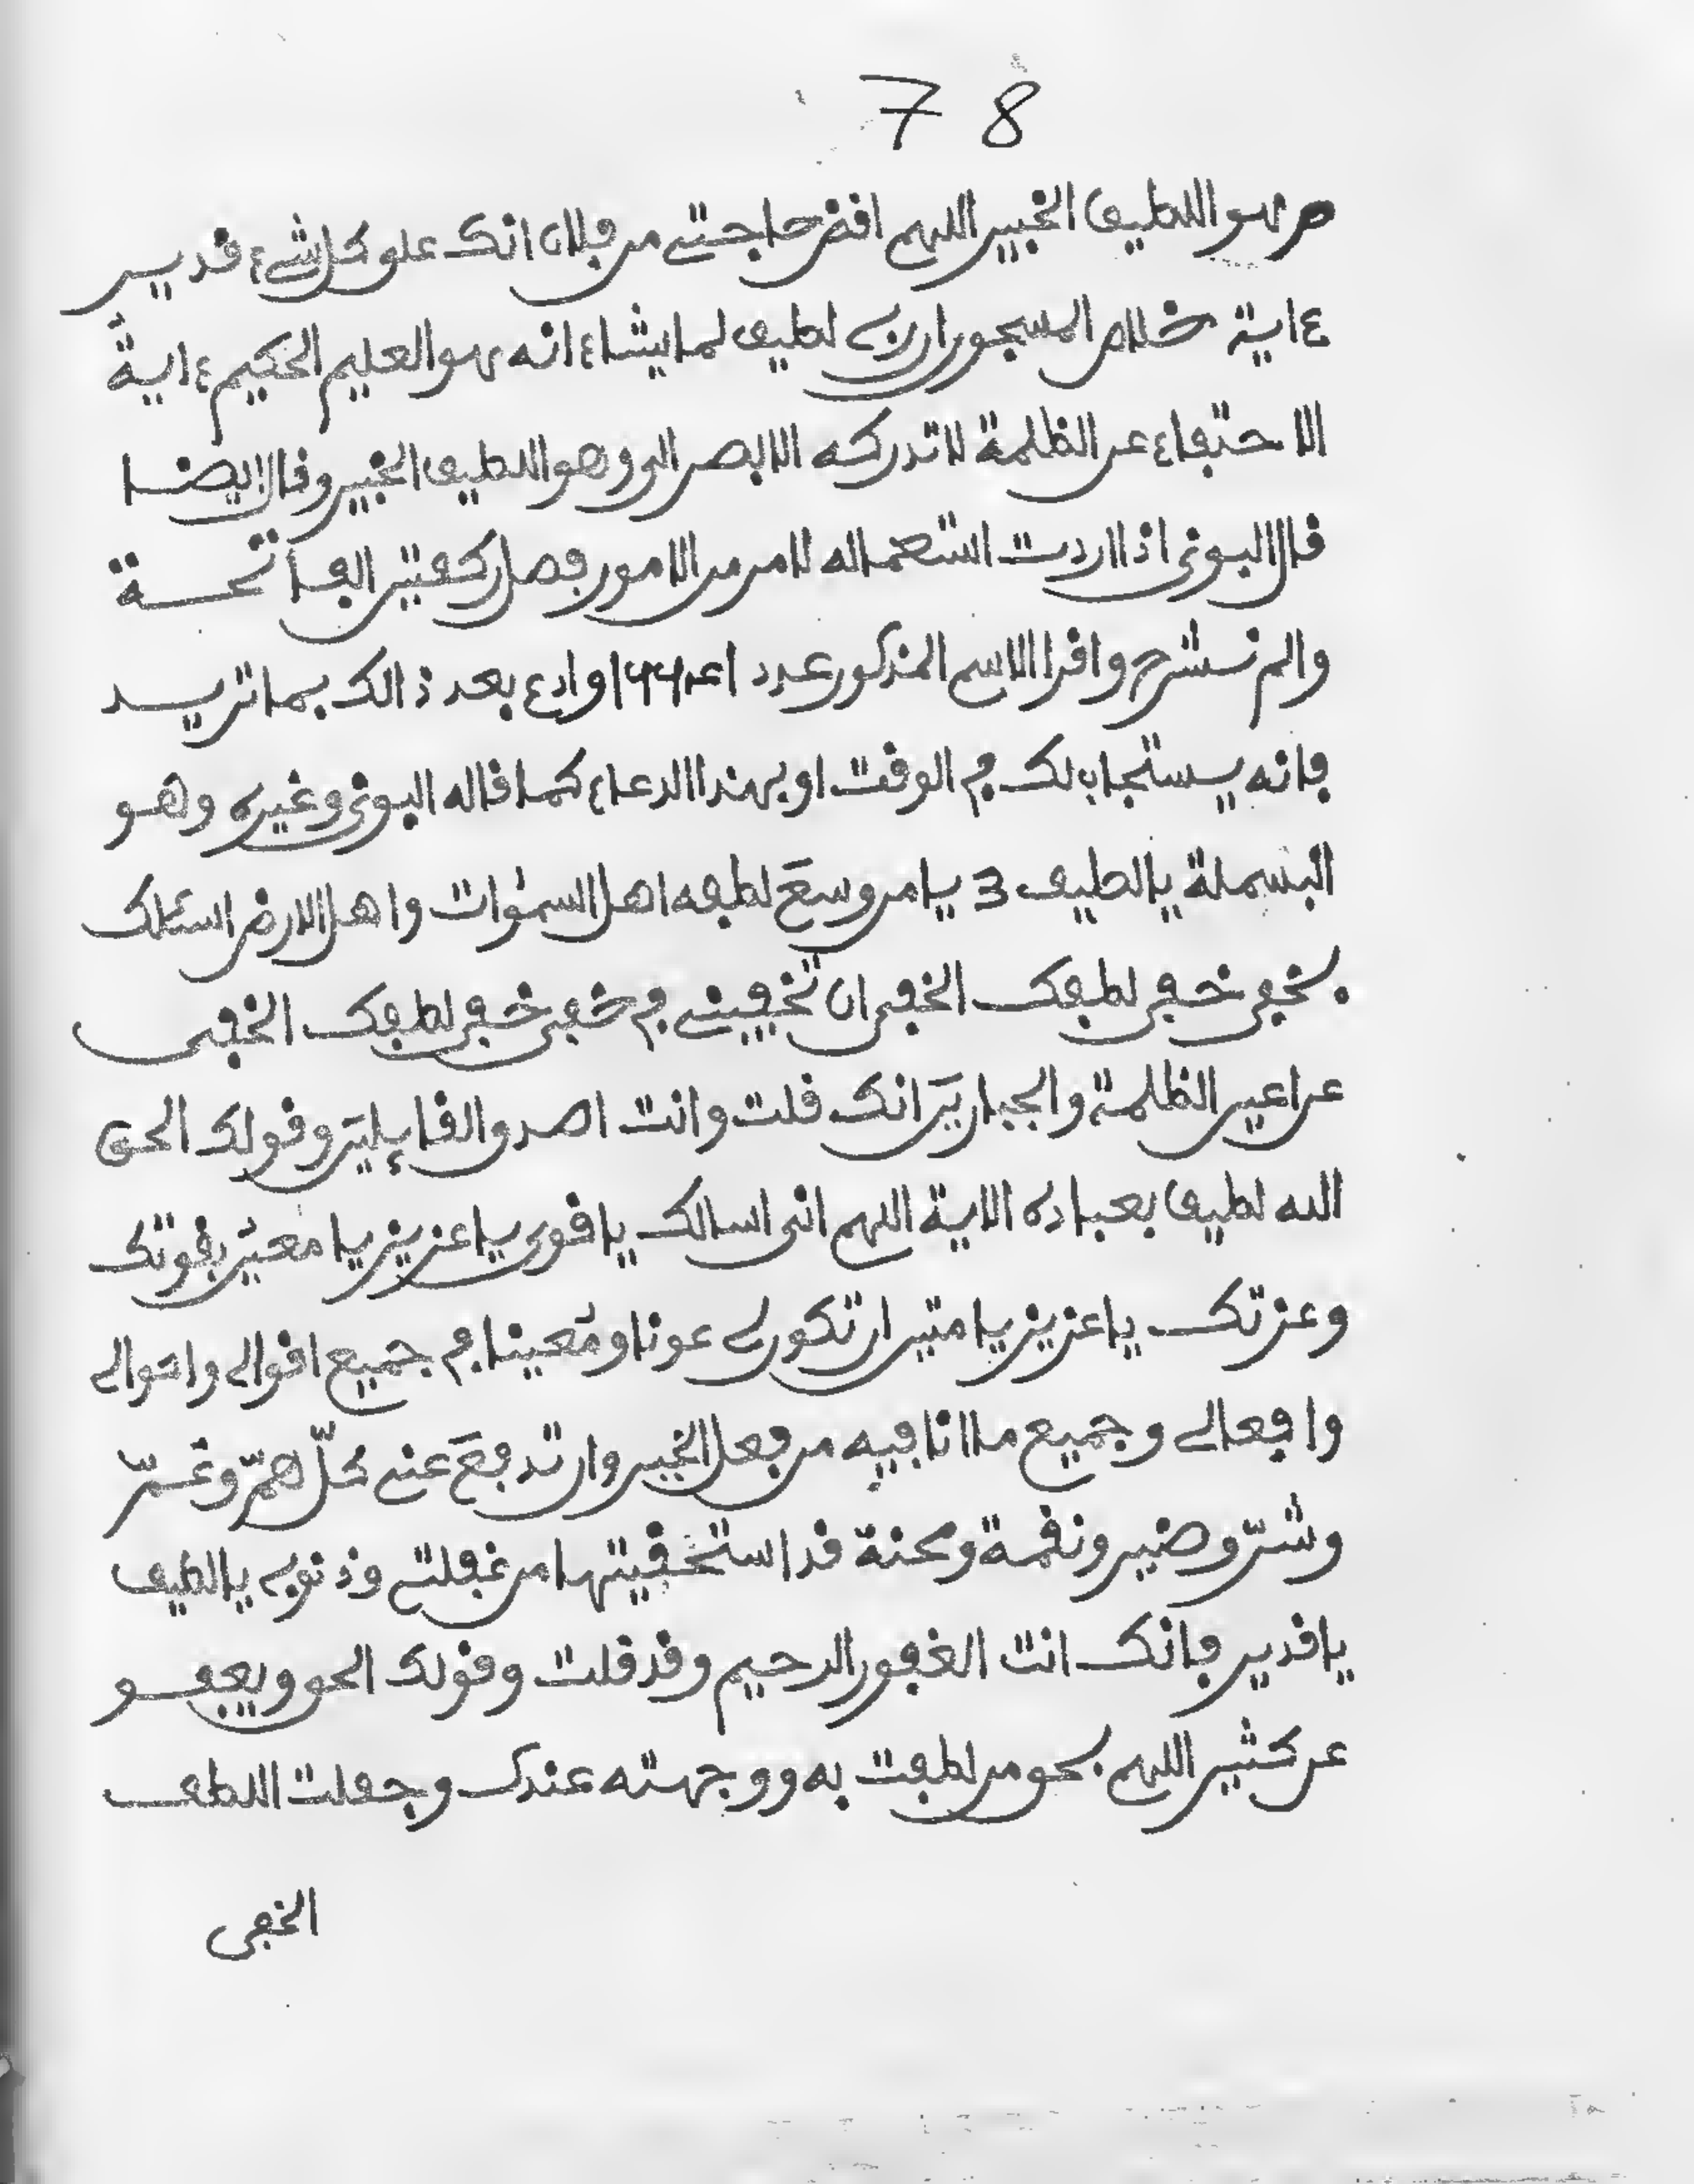 78
وهو اللطيف الخبير اللهم اقض حاجتي من فلان انك على كل شيء قدير
ءاية خلاص المسجون ان ربي لطيف لما يشاء انه هو العليم الحكيم ءاية
الاختفاء عن الظلمة لا تدركه الابصر الى وهو اللطيف الخبير وقال ايضا
قال البوني اذا اردت استعماله لامر من الامور فصل ركعتين الفاتحة
والم نشرح واقرا الاسم المذكور عدد وادع بعد ذالك بما تريد
فانه يستجاب لك في الوقت او بهذا الدعاء كما قاله البوني وغيره وهو
البسملة يالطيف 3 يا من وسع لطفه اهل السموات واهل الارض اسئلك
بخفي خفي لطفك الخفي ان تخفيني في خفي خفي لطفك الخفي
عن اعين الظلمة والجبارين انك قلت وانت اصدق القايلين وقولك الحق
الله لطيف بعباده الاية اللهم اني اسالك يا قوي يا عزيز يا معين بقوتك
وعزتك يا عزيز يا متين ان تكون لي عونا ومعينا في جميع اقوالي واحوالي
وافعالي وجميع ما انا فيه من فعل الخير وان تدفع عني كل همّ وغمّ
وشرّ وضير ونقمة ومحنة قد استحقيتها من غفلتي وذنوبي يالطيف
يا قدير فانك انت الغفور الرحيم وقد قلت وقولك الحق ويعفو
عن كثير اللهم بحق من لطفت به ووجهته عندك وجعلت اللطف
الخفي